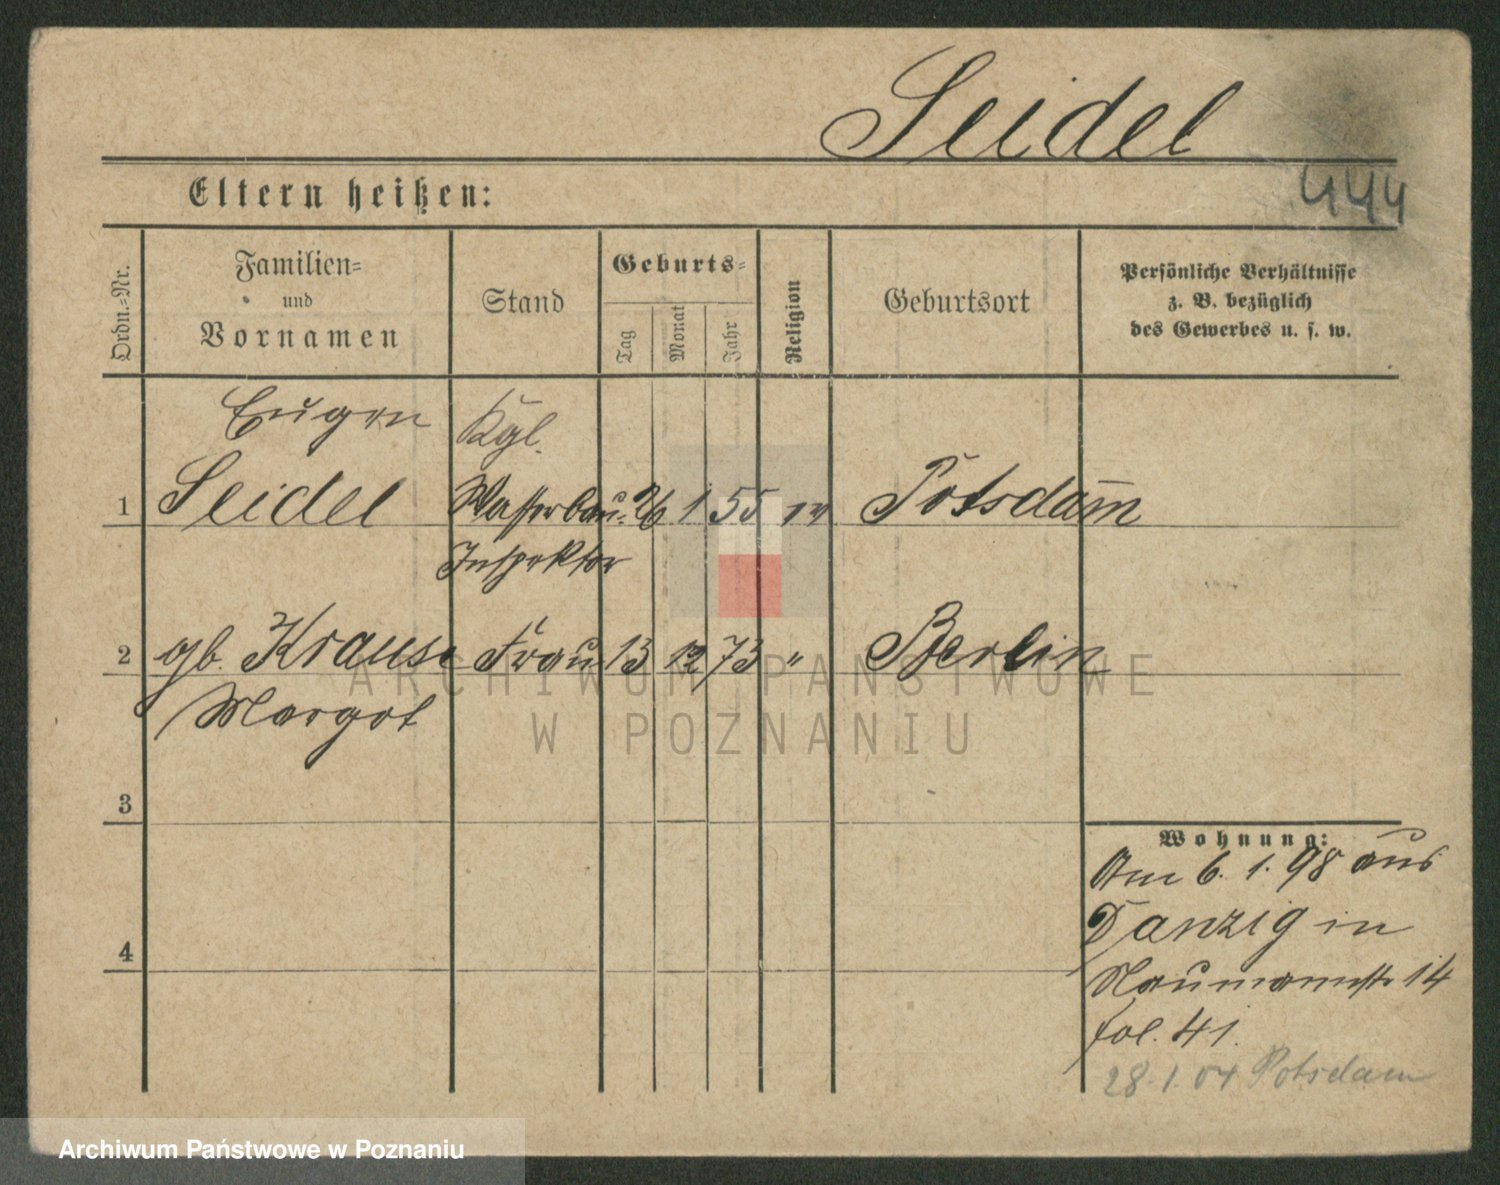 Seidel
Eltern heißen:
444
Ordn.-Nr.
Familien-
und
Vornamen
Stand
Geburts-
Tag
Monat
Jahr
Religion
Geburtsort
Persönliche Verhältnisse
z. B. bezüglich
des Gewerbes u. s. w.
Eugen
Kgl.
1 Seidel Wasserbau- 26 1 55 ev Potsdam
Inspektor
2 gb. Krause Frau 13 12 73 " Berlin
Margot
ARCHIWUM PAŃSTWOWE
W POZNANIU
3
Wohnung:
Am 6. 1. 98 aus
Danzig in
4
Naumannstr 14
fol. 41.
28.1.04 Potsdam
Archiwum Państwowe w Poznaniu